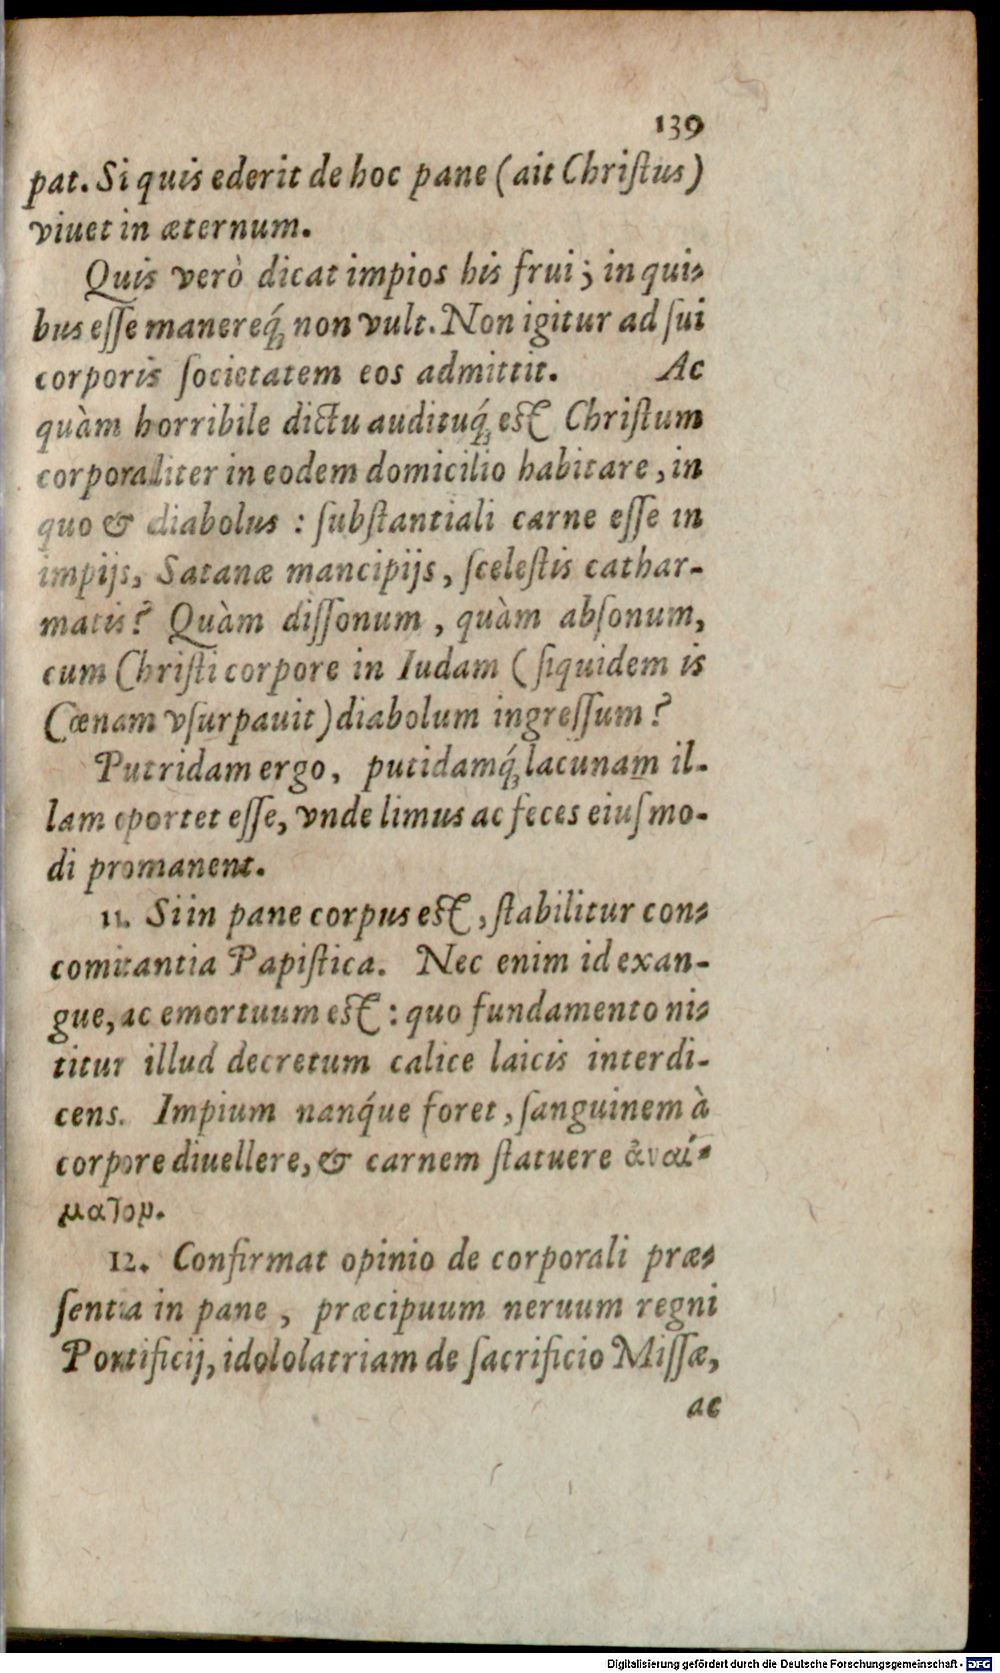 139
pat. Si quis ederit de hoc pane (ait Chriſtus)
viuet in æternum.
Quis verò dicat impios his frui; in qui-
bus eſſe manereq́ꝫ non vult. Non igitur ad ſui
corporis ſocietatem eos admittit. Ac
quàm horribile dictu audituq́ꝫ eſt Chriſtum
corporaliter in eodem domicilio habitare, in
quo & diabolus : ſubſtantiali carne eſſe in
impijs, Satanæ mancipijs, ſceleſtis cathar-
matis? Quàm diſſonum, quàm abſonum,
cum Chriſti corpore in Iudam (ſiquidem is
Cœnam vſurpauit) diabolum ingreſſum?
Putridam ergo, putidamq́ꝫ lacunam il-
lam oportet eſſe, vnde limus ac feces eiuſmo-
di promanent.
11. Si in pane corpus eſt, ſtabilitur con-
comitantia Papiſtica. Nec enim id exan-
gue, ac emortuum eſt : quo fundamento ni-
titur illud decretum calice laicis interdi-
cens. Impium nanq́ue foret, ſanguinem à
corpore diuellere, & carnem ſtatuere ἀναί-
ματον.
12. Confirmat opinio de corporali præ-
ſentia in pane, præcipuum neruum regni
Pontificij, idololatriam de ſacrificio Miſſæ,
ac
Digitalisierung gefördert durch die Deutsche Forschungsgemeinschaft - DFG